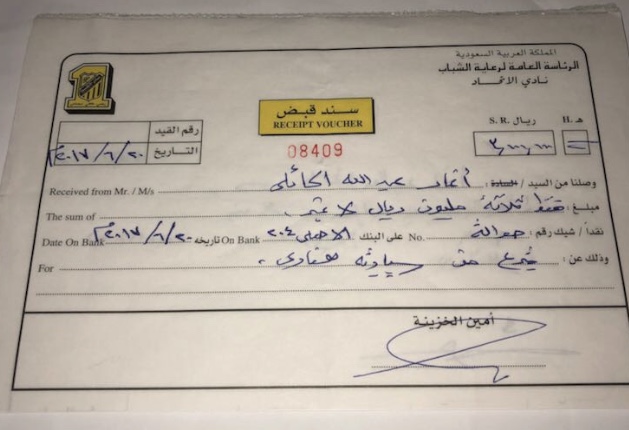 المملكة العربية السعودية
الرئاسة العامة لرعاية الشباب
نادي الاتحاد
سند قبض
RECEIPT VOUCHER
08409
ريال S. R.
هـ H.
٣,٠٠٠,٠٠٠
رقم القيد
التاريخ ٢٠١٧/٦/٢٠م
وصلنا من السيد / السادة : عبد الله Received from Mr. / M/s
مبلغ : فقط ثلاثة مليون ريال لا غير The sum of
نقداً / شيك رقم : حوالة No. على البنك الأهلي On Bank تاريخه ٢٠١٧/٦/٢٠م Date On Bank
وذلك عن : تبرع من For
أمين الخزينة